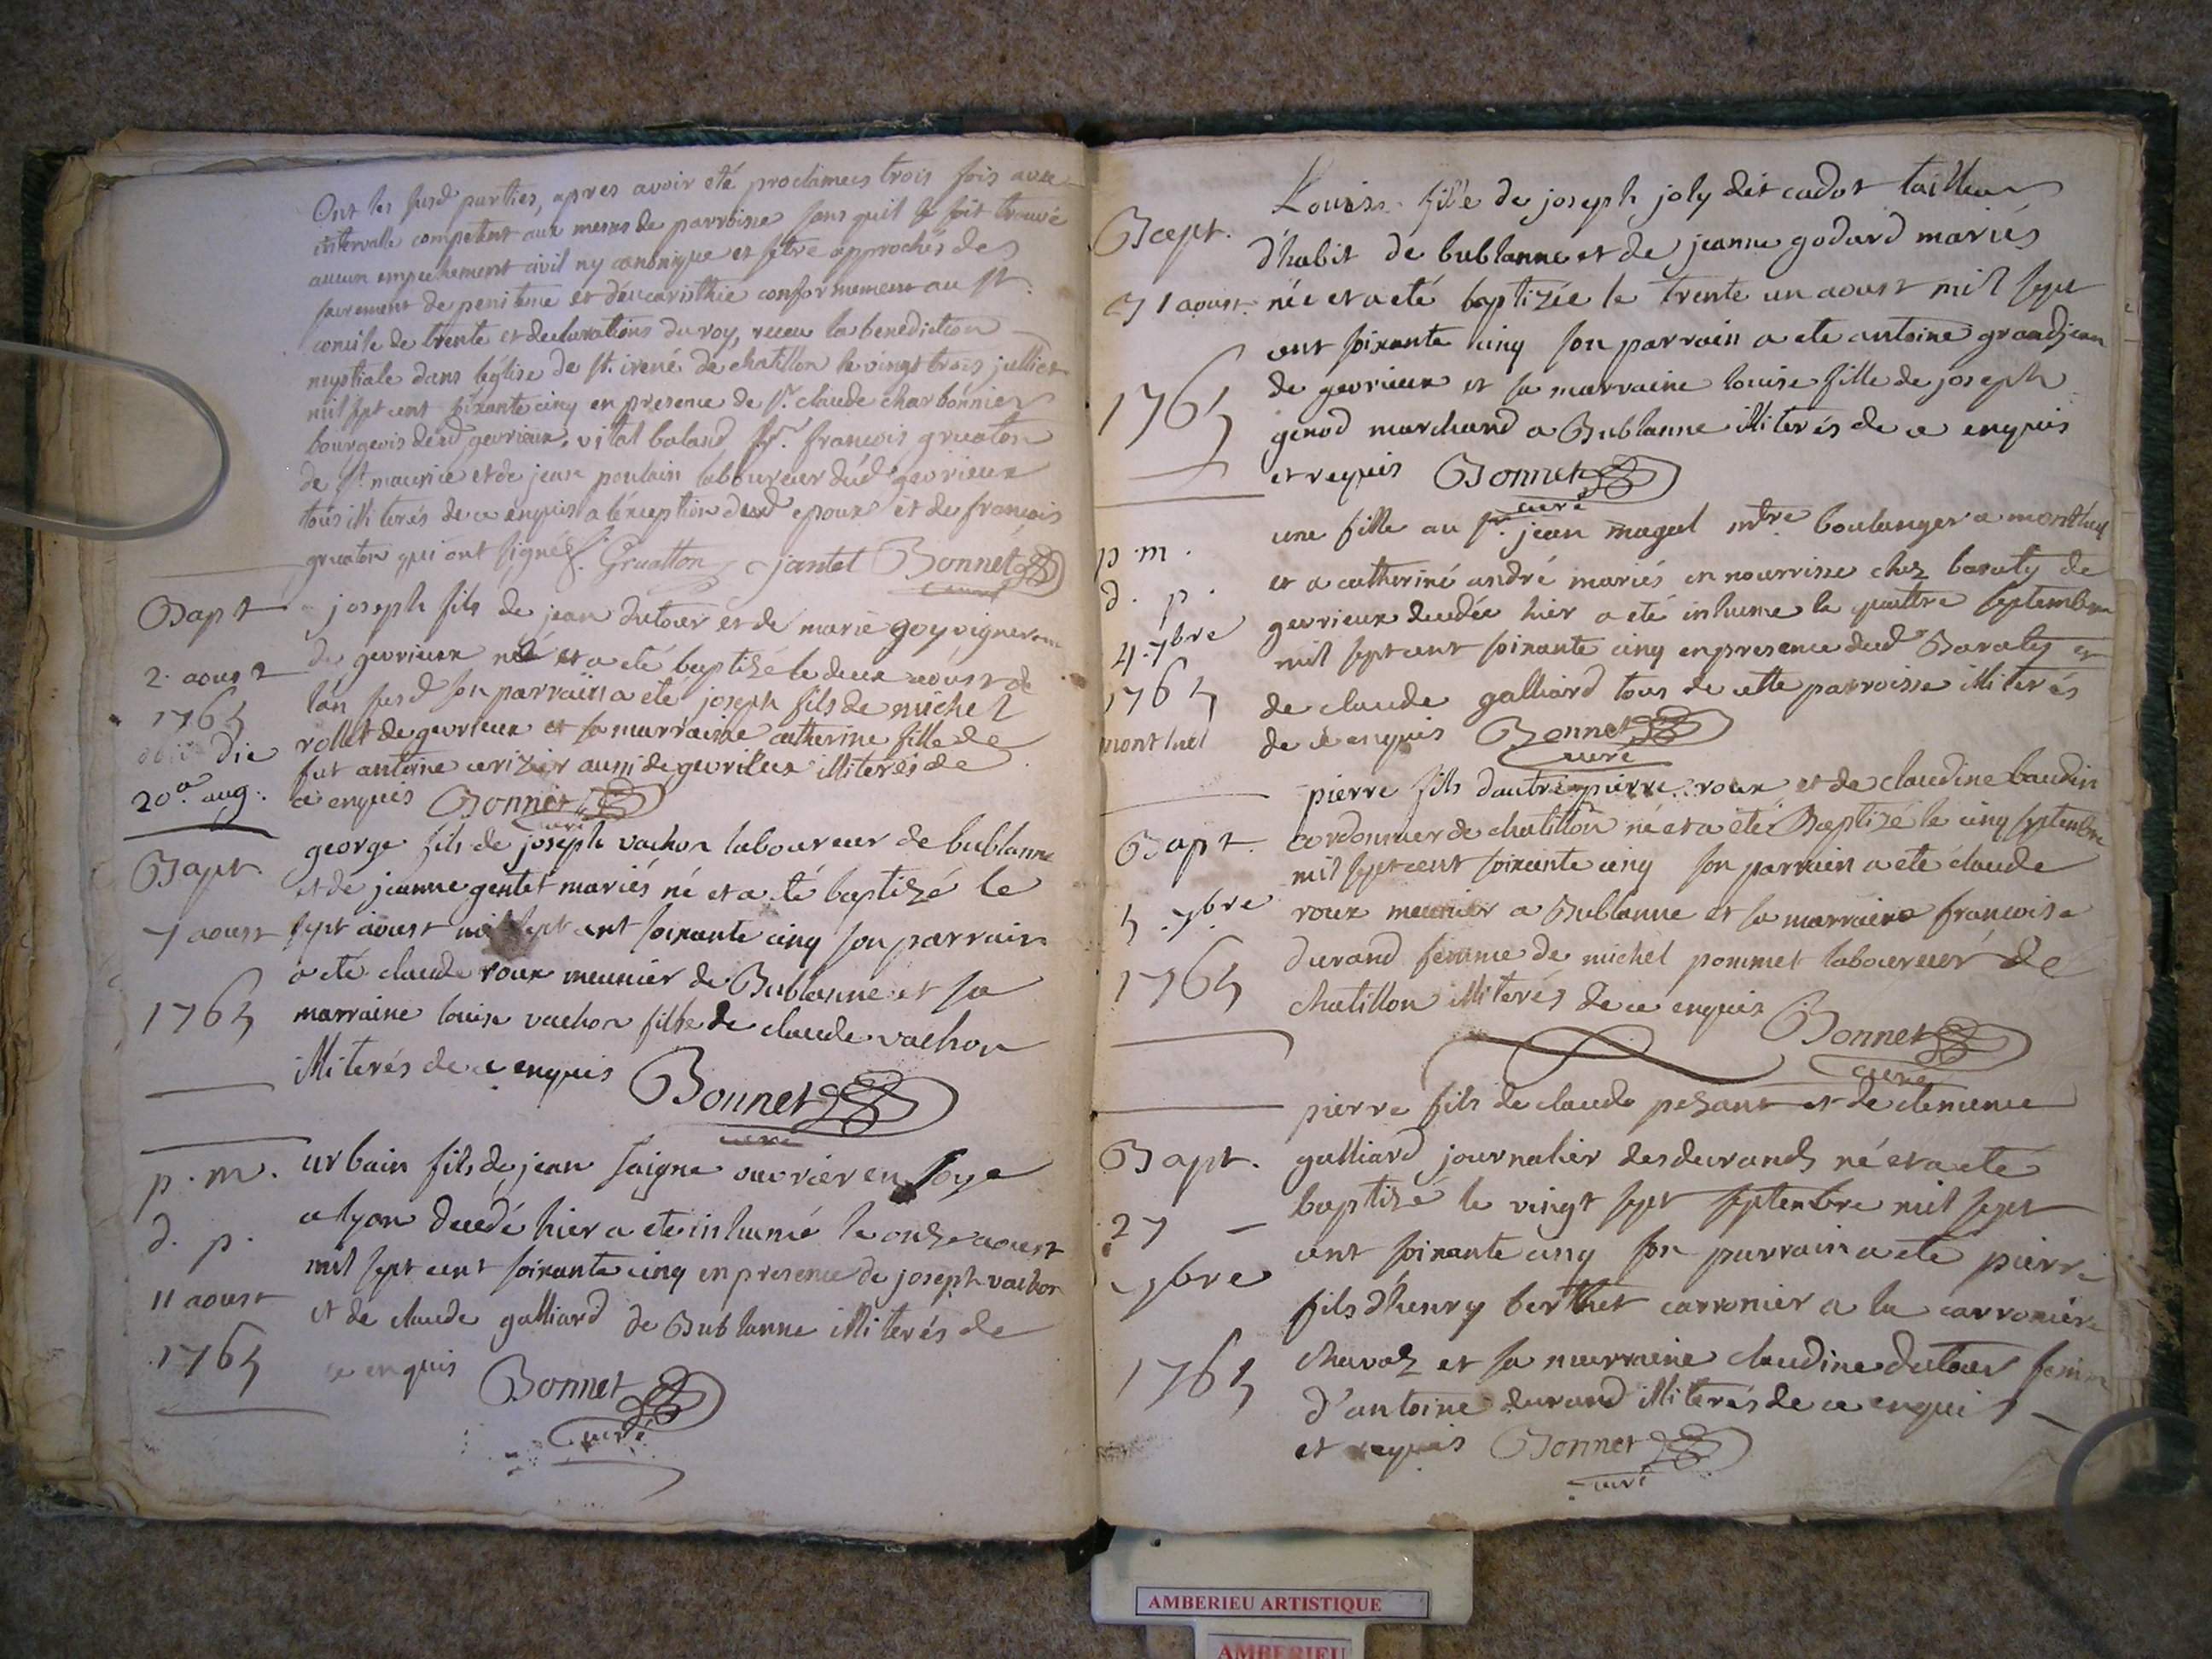 Ont les susd parties, apres avoir eté proclamees trois fois avec
intervalle competent aux messes de parroisse sans quil se soit trouvé
aucun empechement civil ny canonique et s'etre approchés des
sacrement de penitence et d'eucaristhie conformement au st
concile de trente et declarations du roy, receu la benediction
nuptiale dans l'église de st. irené de chatillon le vingt trois julliet
mil sept cent soixante cinq en presence de sr. claude charbonnier
bourgeois dud gevrieux, vital baland sr. francois gruaton
de st maurice et de jean poulain laboureur dud gevrieux
tous illiterés de ce enquis a l'exception dud epoux et de francois
gruaton qui ont signé f. Gruatton c jantet Bonnet
curé
Bapt
2. aoust
1765
obiit die
20a. aug.
joseph fils de jean dutour et de marie goy vigneron
de gevrieux né et a eté baptizé le deux aoust de
lan susd son parrain a eté joseph fils de michel
rollet de gevrieux et sa marraine catherine fille de
fut antoine cerizier aussi de gevrieux illiterés de
ce enquis Bonnet
curé
Bapt.
7 aoust
1765
george fils de joseph vachon laboureur de bublanne
et de jeanne gentet mariés né et a eté baptizé le
sept aoust mil sept cent soixante cinq son parrain
a eté claude roux meunier de Bublanne et sa
marraine louise vachon fille de claude vachon
illiterés de ce enquis Bonnet
curé
p. m.
d. p.
11 aoust
1765
urbain fils de jean saigne ouvrier en soye
a lyon decedé hier a eté inhumé le onze aoust
mil sept cent soixante cinq en presence de joseph vachon
et de claude galliard de Bublanne illiterés de
ce enquis Bonnet
curé
Bapt.
31 aoust.
1765
Louise fille de joseph joly dit cadot tailleur
d'habit de bublanne et de jeanne godard mariés
née et a eté baptizée le trente un aoust mil sept
cent soixante cinq son parrain a ete antoine grandjean
de gevrieux et sa marraine louise fille de joseph
genod marchand a Bublanne illiterés de ce enquis
et requis Bonnet
curé
p. m.
d. p.
4. 7bre
1765
montluel
une fille au sr. jean magal mtre boulanger a montluel
et a catherine andré mariés en nourrisse chez baraty de
gevrieux decedée hier a eté inhume le quattre septembre
mil sept cent soixante cinq en presence dud Baraty et
de claude galliard tous de cette parroisse illiterés
de ce enquis Bonnet
curé
Bapt.
5. 7bre
1765
pierre fils d'autre pierre roux et de claudine baudin
cordonnier de chatillon né et a eté Baptizé le cinq septembre
mil sept cent soixante cinq son parrain a eté claude
roux meunier a Bublanne et sa marraine francoise
durand femme de michel pommet laboureur de
chatillon illiterés de ce enquis Bonnet
curé
Bapt.
27
7bre
1765
pierre fils de claude pezant et de clemence
galliard journalier des durands né et a eté
baptizé le vingt sept septembre mil sept
cent soixante cinq son parrain a eté pierre
fils d'henry berthet carronier a la carroniere
chavoz et sa marraine claudine dutour femme
d'antoine durand illiterés de ce enquis
et requis Bonnet
curé
AMBERIEU ARTISTIQUE
AMBERIEU